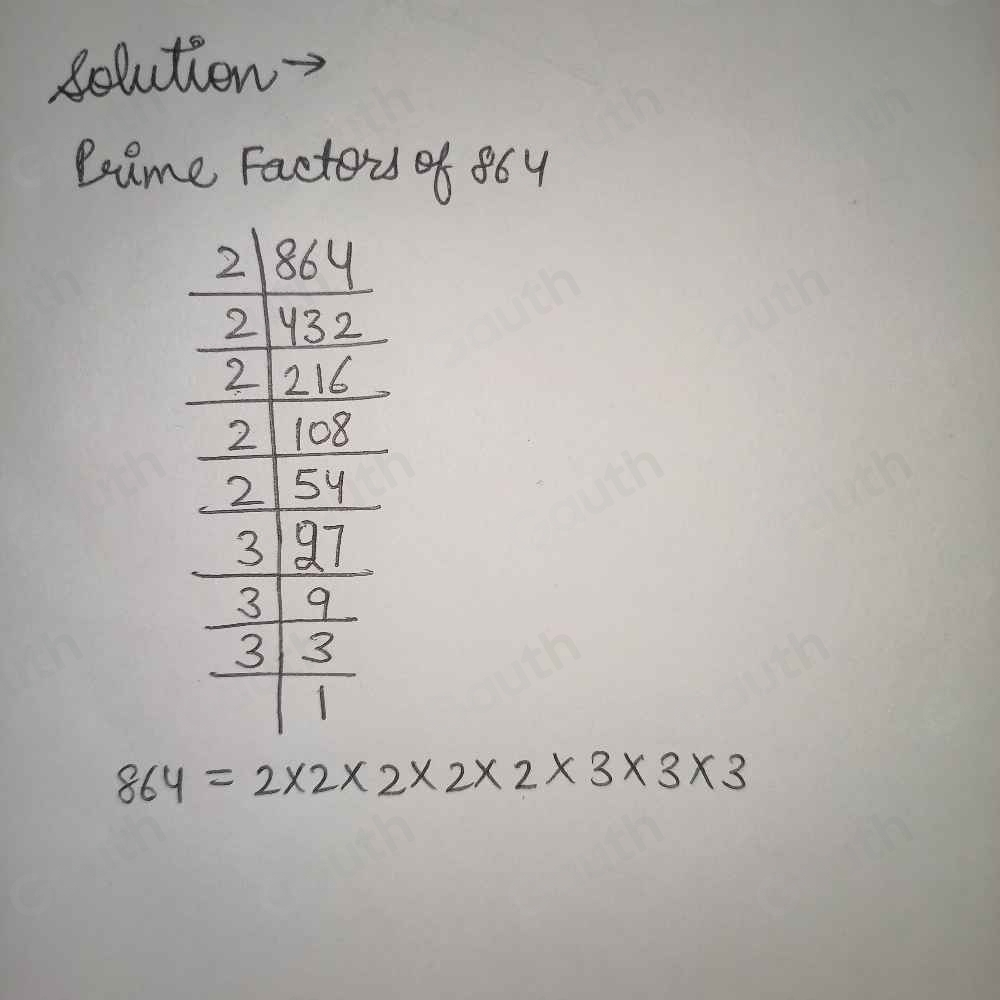 Solution →
Prime Factors of 864
2 | 864
2 | 432
2 | 216
2 | 108
2 | 54
3 | 27
3 | 9
3 | 3
| 1
864 = 2×2×2×2×2×3×3×3